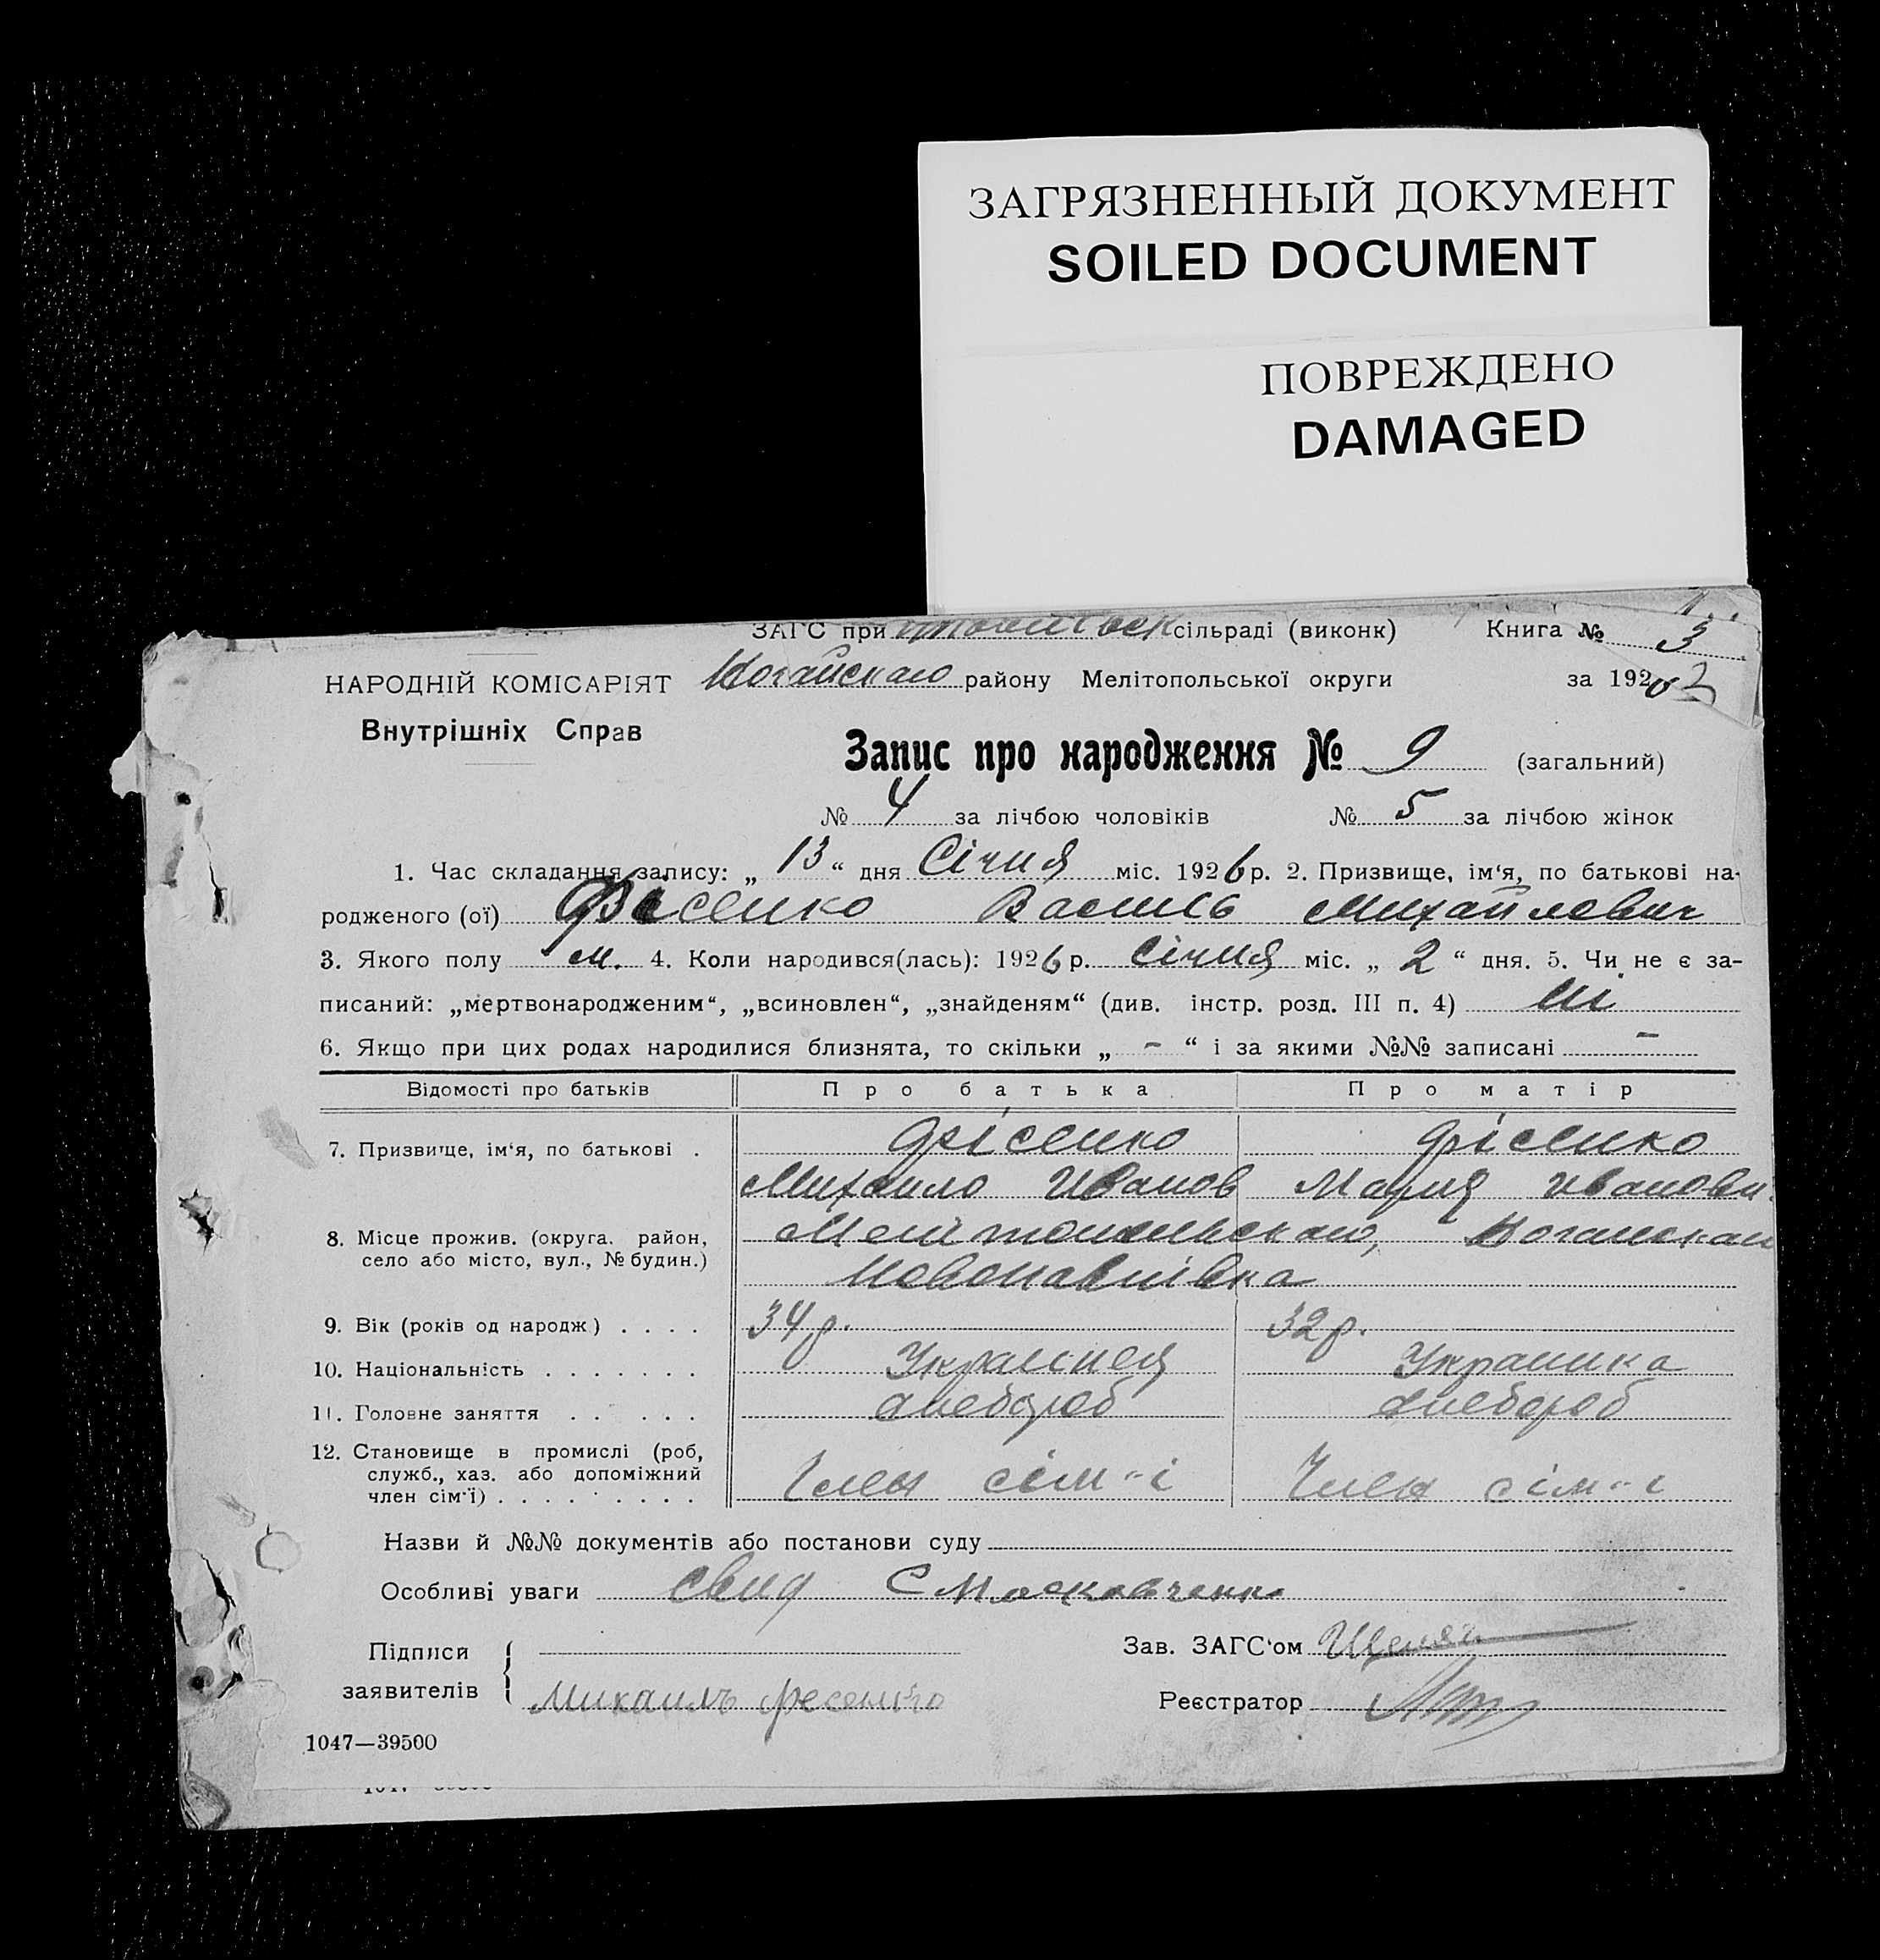 ЗАГРЯЗНЕННЫЙ ДОКУМЕНТ
SOILED DOCUMENT
ПОВРЕЖДЕНО
DAMAGED
ЗАГС при сільраді (виконк) Книга № 3
НАРОДНІЙ КОМІСАРІЯТ Ногайскаго району Мелітопольської округи за 192
Внутрішніх Справ
Запис про народження № 9 (загальний)
№ 4 за лічбою чоловіків № 5 за лічбою жінок
1. Час складання запису: „ 13 “ дня Січня міс. 1926 р. 2. Призвище, ім‘я, по батькові на-
родженого (ої) Фісенко Василь Михайлович
3. Якого полу м. 4. Коли народився(лась): 1926 р. Січня міс. „ 2 “ дня. 5. Чи не є за-
писаний: „мертвонародженим“, „всиновлен“, „знайденям“ (див. інстр. розд. III п. 4) Ні
6. Якщо при цих родах народилися близнята, то скільки „ - “ і за якими №№ записані -
Відомості про батьків Про батька Про матір
7. Призвище, ім‘я, по батькові . Фісенко Фісенко
Михаило Иванов Мария Ивановн.
8. Місце прожив. (округа. район, Мелітопольскаго, Ногайскаго
село або місто, вул., № будин.) Новопавлівка
9. Вік (років од народж) . . . . 34 р. 32 р.
10. Національність . . . . . . . Українец Українка
11. Головне заняття . . . . . хлебороб хлебороб
12. Становище в промислі (роб, служб., хаз. або допоміжний член сім‘ї) . . . . . . . . . Член сім-ї Член сім-ї
Назви й №№ документів або постанови суду
Особливі уваги свид С Московченко
Підписи Зав. ЗАГС‘ом
заявителів Михаилъ Фесенко Реєстратор
1047—39500